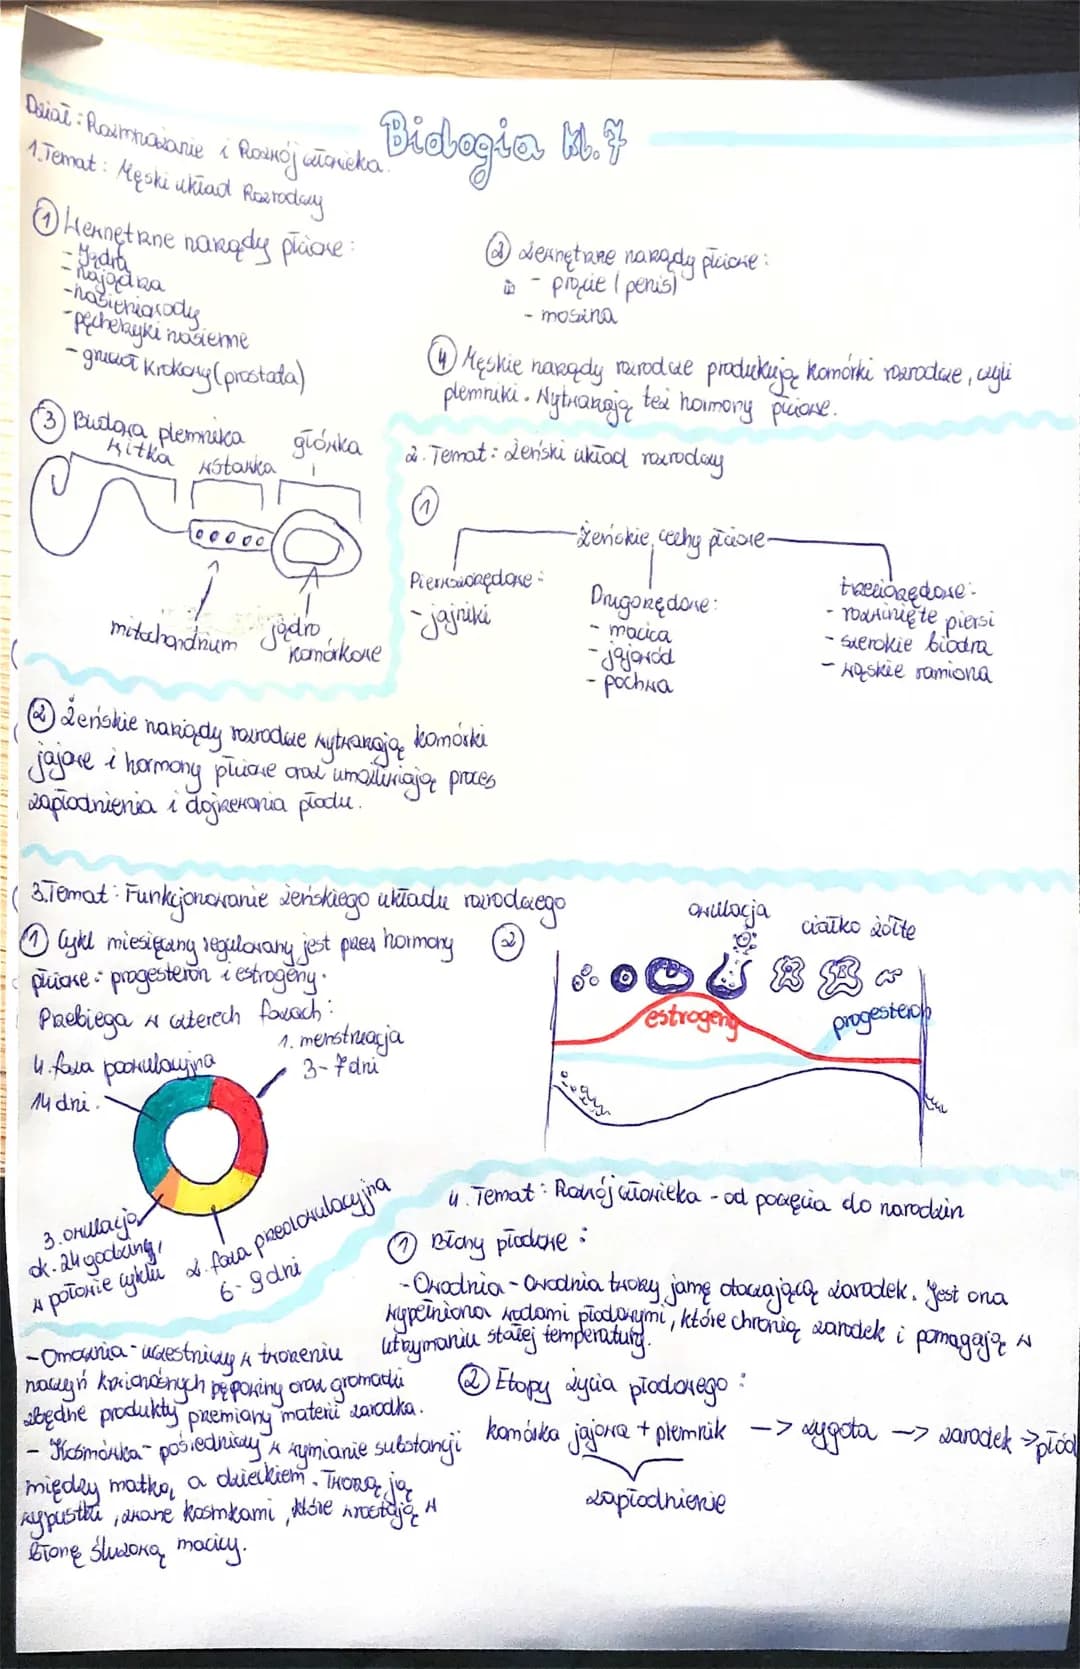 Biologia kl. 7
Dział: Rozmnażanie i Rozwój człowieka.
1. Temat: Męski układ Rozrodczy
① Wewnętrzne narządy płciowe:
- Jądra
- najądrza
- nasieniowody
- pęcherzyki nasienne
- gruczoł krokowy (prostata)
② Zewnętrzne narządy płciowe:
- prącie (penis)
- moszna
③ Budowa plemnika
witka
wstawka
główka
mitochondrium
jądro
komórkowe
④ Męskie narządy rozrodcze produkują komórki rozrodcze, czyli
plemniki. Wytwarzają też hormony płciowe.
2. Temat: Żeński układ rozrodczy
①
Żeńskie cechy płciowe
Pierwszorzędowe:
- jajniki
Drugorzędowe:
- macica
- jajowód
- pochwa
trzeciorzędowe:
- rozwinięte piersi
- szerokie biodra
- wąskie ramiona
② Żeńskie narządy rozrodcze wytwarzają komórki
jajowe i hormony płciowe oraz umożliwiają proces
zapłodnienia i dojrzewania płodu.
3. Temat: Funkcjonowanie żeńskiego układu rozrodczego
① Cykl miesięczny regulowany jest przez hormony
płciowe: progesteron i estrogeny.
Przebiega w czterech fazach:
1. menstruacja
3-7 dni
4. faza poowulacyjna
14 dni.
3. owulacja
ok. 24 godziny,
w połowie cyklu
2. faza przedowulacyjna
6-9 dni
②
owulacja
ciałko żółte
estrogeny
progesteron
4. Temat: Rozwój człowieka - od poczęcia do narodzin
① Błony płodowe:
- Owodnia - Owodnia tworzy jamę otaczającą zarodek. Jest ona
wypełniona wodami płodowymi, które chronią zarodek i pomagają w
utrzymaniu stałej temperatury.
- Omocznia - uczestniczy w tworzeniu
naczyń krwionośnych pępowiny oraz gromadzi
zbędne produkty przemiany materii zarodka.
- Kosmówka - pośredniczy w wymianie substancji
między matką, a dzieckiem. Tworzą ją
wypustki, zwane kosmkami, które wrastają w
błonę śluzową macicy.
② Etapy życia płodowego:
komórka jajowa + plemnik -> zygota -> zarodek -> płód
zapłodnienie